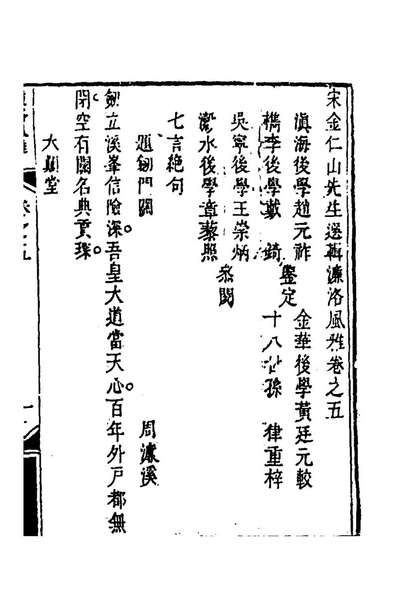 宋金仁山先生選輯濂洛風雅卷之五
滇海後學趙元祚
檇李後學戴錡
鑒定
金華後學黃廷元較
十八世孫律重梓
吳寧後學王崇炳
瀫水後學章藜照
叅閱
七言絕句
題劒門關
周濂溪
劒立溪峯信險深。吾皇大道當天心。百年外戶都無
閉。空有關名點貢琛。
大顛堂
卷之五